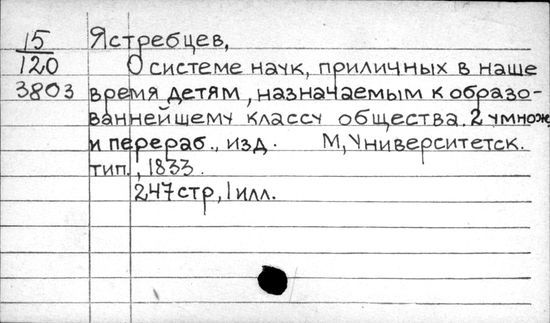 15 Ястребцев,
120 О системе наук, приличных в наше
3803 время детям, назначаемым к образо-
ваннейшему классу общества. 2 умнож
и перераб., изд. М, Университетск.
тип., 1833.
247 стр, 1 илл.